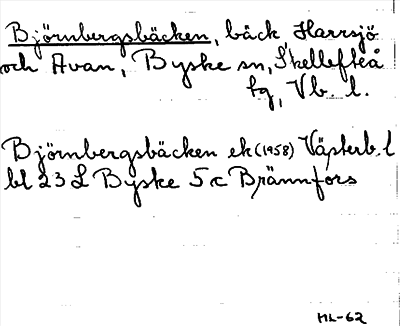 Björnbergsbäcken, bäck Harrsjö
och Avan, Byske sn, Skellefteå
tg, Vb. l.
Björnbergsbäcken ek (1958) Västerb. l
bl 23 L Byske 5 c Brännfors
ML-62